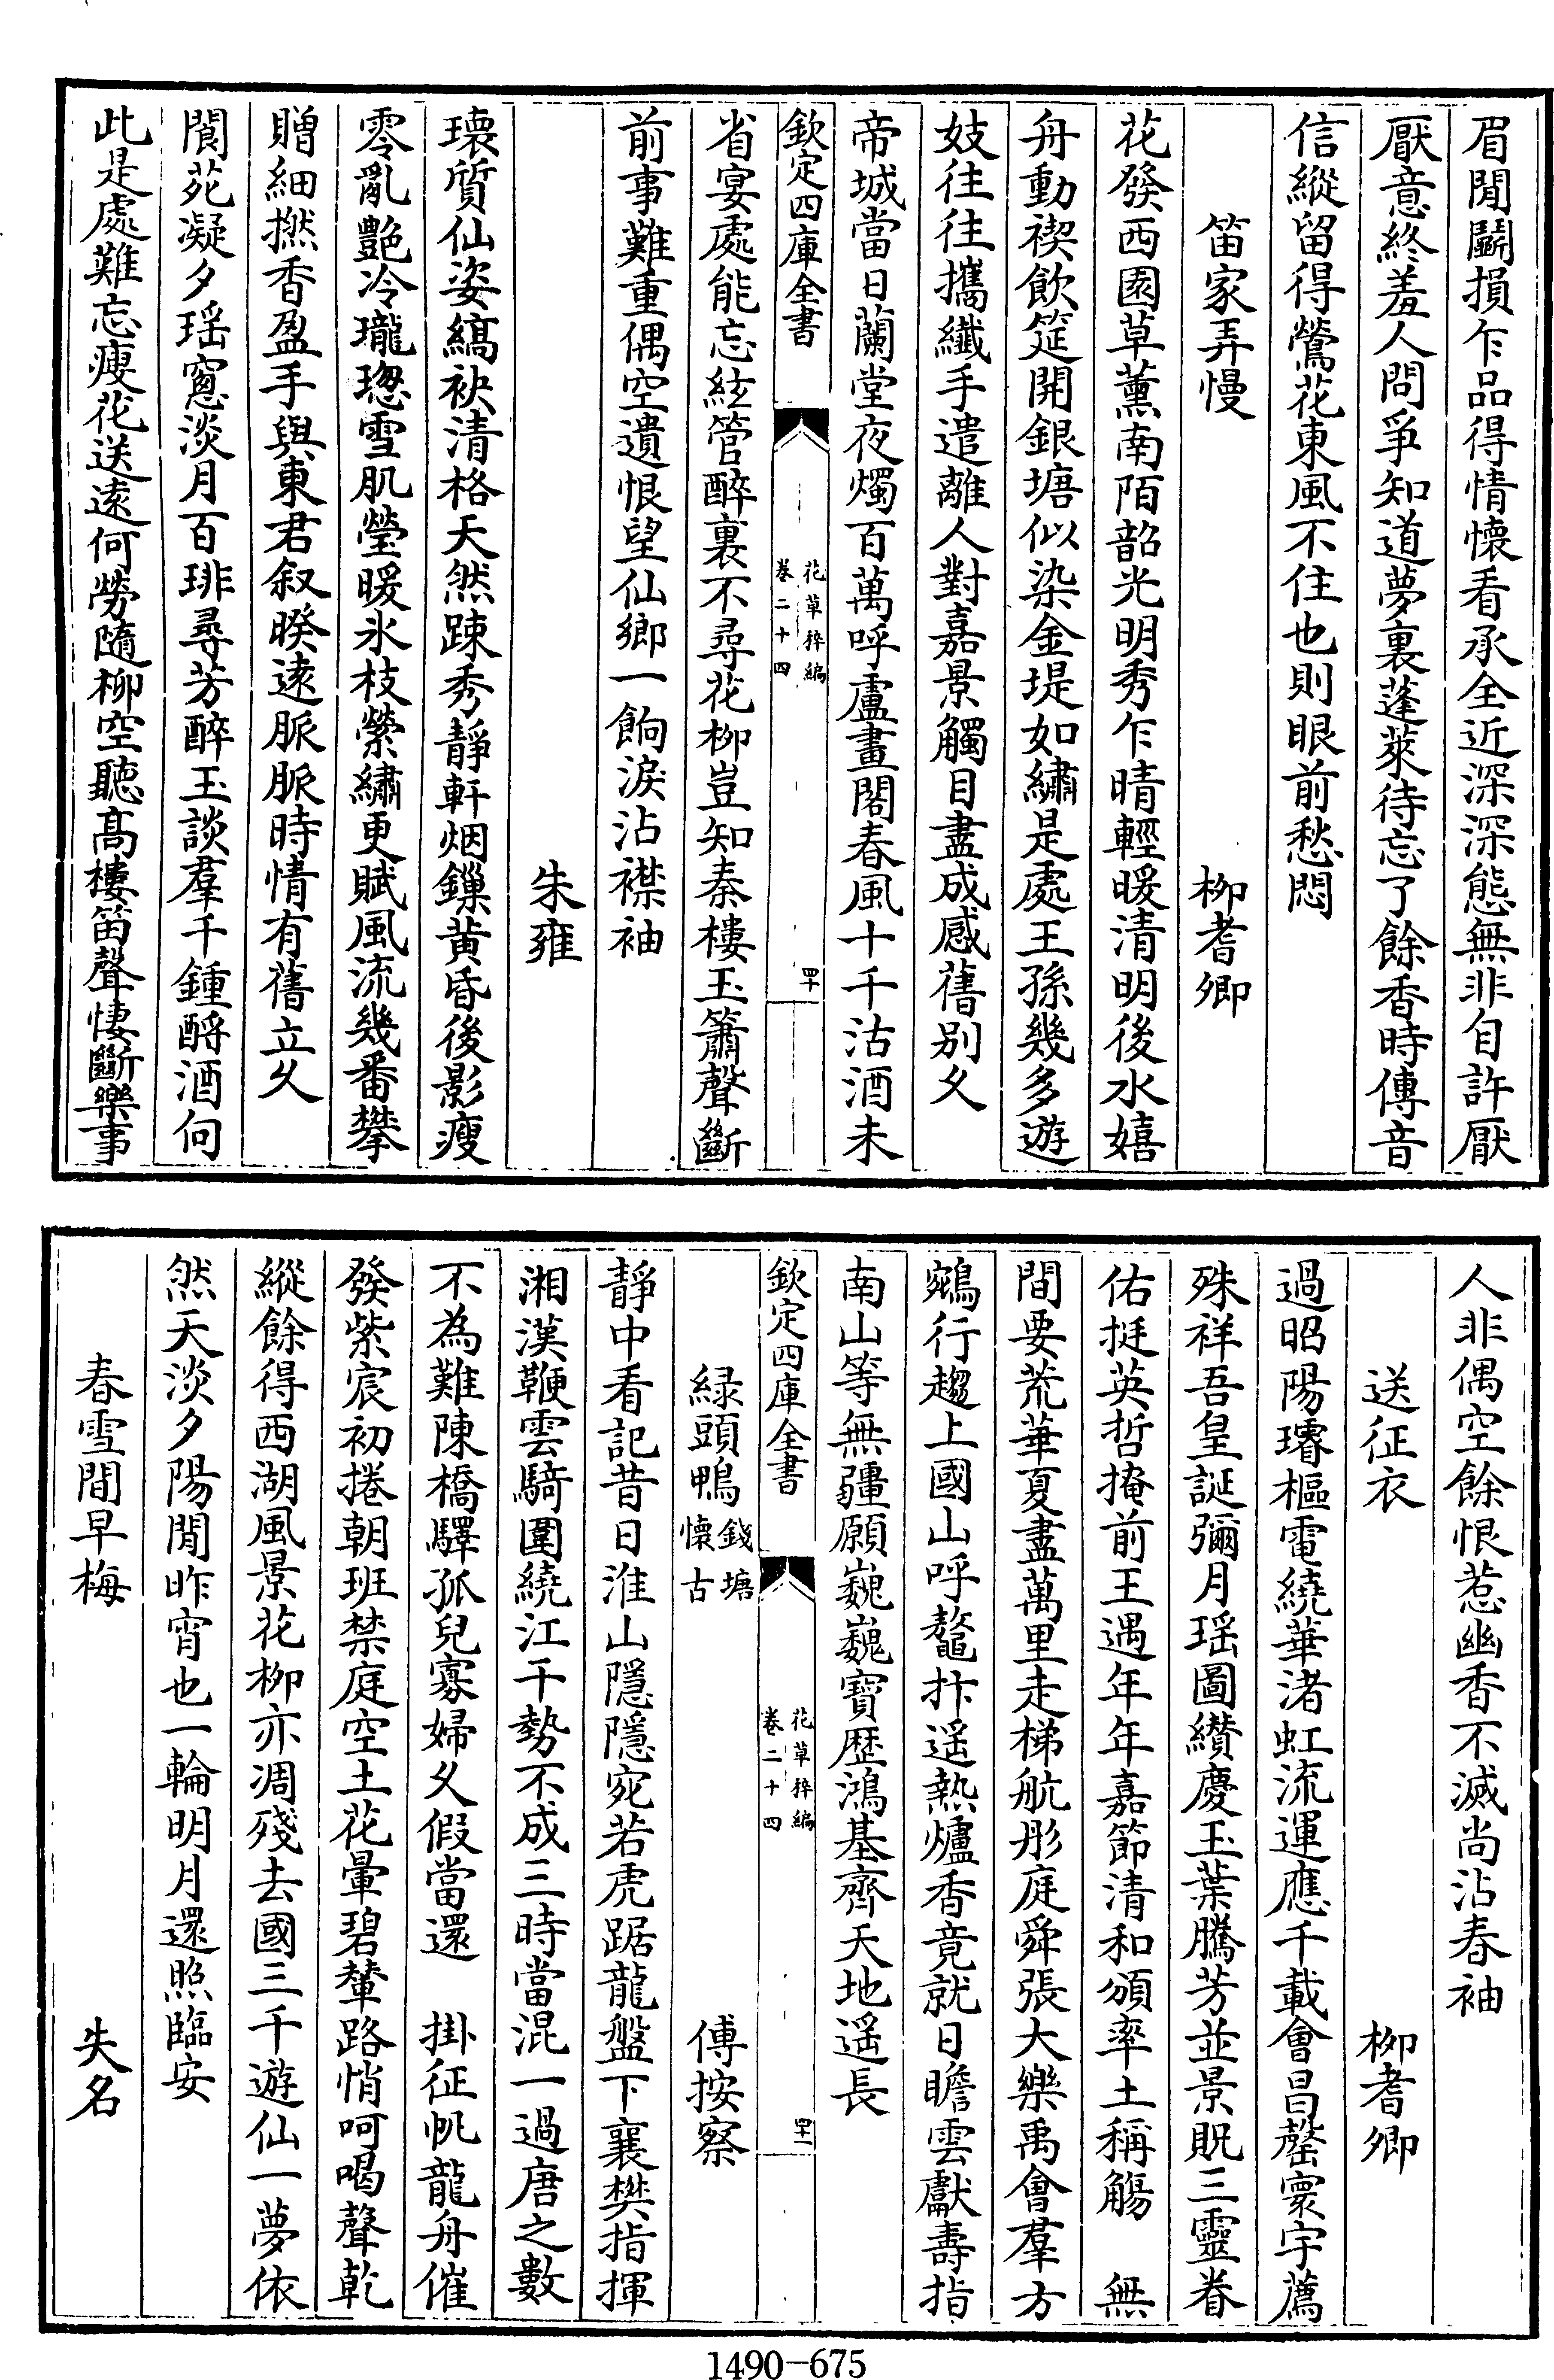 眉閒鬬損乍品得情懷看承全近深深態無非自許厭
厭意終羞人問爭知道夢裏蓬萊待忘了餘香時傳音
信縱留得鶯花東風不住也則眼前愁悶
笛家弄慢 柳耆卿
花發西園草薰南陌韶光明秀乍晴輕暖清明後水嬉
舟動禊飲筵開銀塘似染金堤如繡是處王孫幾多遊
妓往往攜纖手遣離人對嘉景觸目盡成感舊别久
帝城當日蘭堂夜燭百萬呼盧畫閣春風十千沽酒未
欽定四庫全書 花草稡編 卷二十四 四十
省宴處能忘絃管醉裏不尋花柳豈知秦樓玉簫聲斷
前事難重偶空遺恨望仙鄉一餉淚沾襟袖
朱雍
瓌質仙姿縞袂清格天然踈秀靜軒烟鏁黄昏後影瘦
零亂艷冷瓏璁雪肌瑩暖氷枝縈繡更賦風流幾番攀
贈細撚香盈手與東君叙暌遠脈脈時情有舊立久
閬苑凝夕瑶窻淡月百琲尋芳醉玉談羣千鍾酹酒何
此是處難忘瘦花送遠何勞隨柳空聽髙樓笛聲悽斷樂事
人非偶空餘恨惹幽香不滅尚沾春袖
送征衣 柳耆卿
過昭陽璿樞電繞華渚虹流運應千載會昌罄寰宇薦
殊祥吾皇誕彌月瑶圖纘慶玉葉騰芳並景貺三靈眷
佑挺英哲掩前王遇年年嘉節清和頒率土稱觴 無
間要荒華夏盡萬里走梯航彤庭舜張大樂禹會羣方
鵷行趨上國山呼鼇抃遥熱爐香竟就日瞻雲獻壽指
南山等無疆願巍巍寶歴鴻基齊天地遥長
欽定四庫全書 花草稡編 卷二十四 四十一
緑頭鴨 錢塘懷古 傅按察
靜中看記昔日淮山隱隱宛若虎踞龍盤下襄樊指揮
湘漢鞭雲騎圍繞江干勢不成三時當混一過唐之數
不為難陳橋驛孤兒寡婦久假當還 掛征帆龍舟催
發紫宸初捲朝班禁庭空土花暈碧輦路悄呵喝聲乾
縱餘得西湖風景花柳亦凋殘去國三千遊仙一夢依
然天淡夕陽閒昨宵也一輪明月還照臨安
春雪間早梅 失名
1490-675